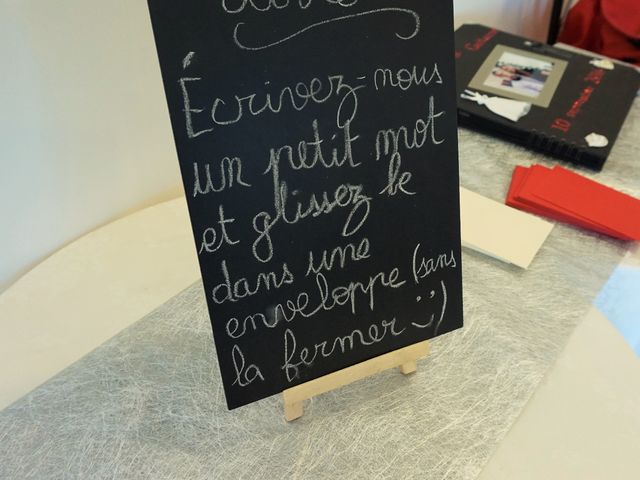 Écrivez-nous
un petit mot
et glissez le
dans une
enveloppe (sans
la fermer :)
10